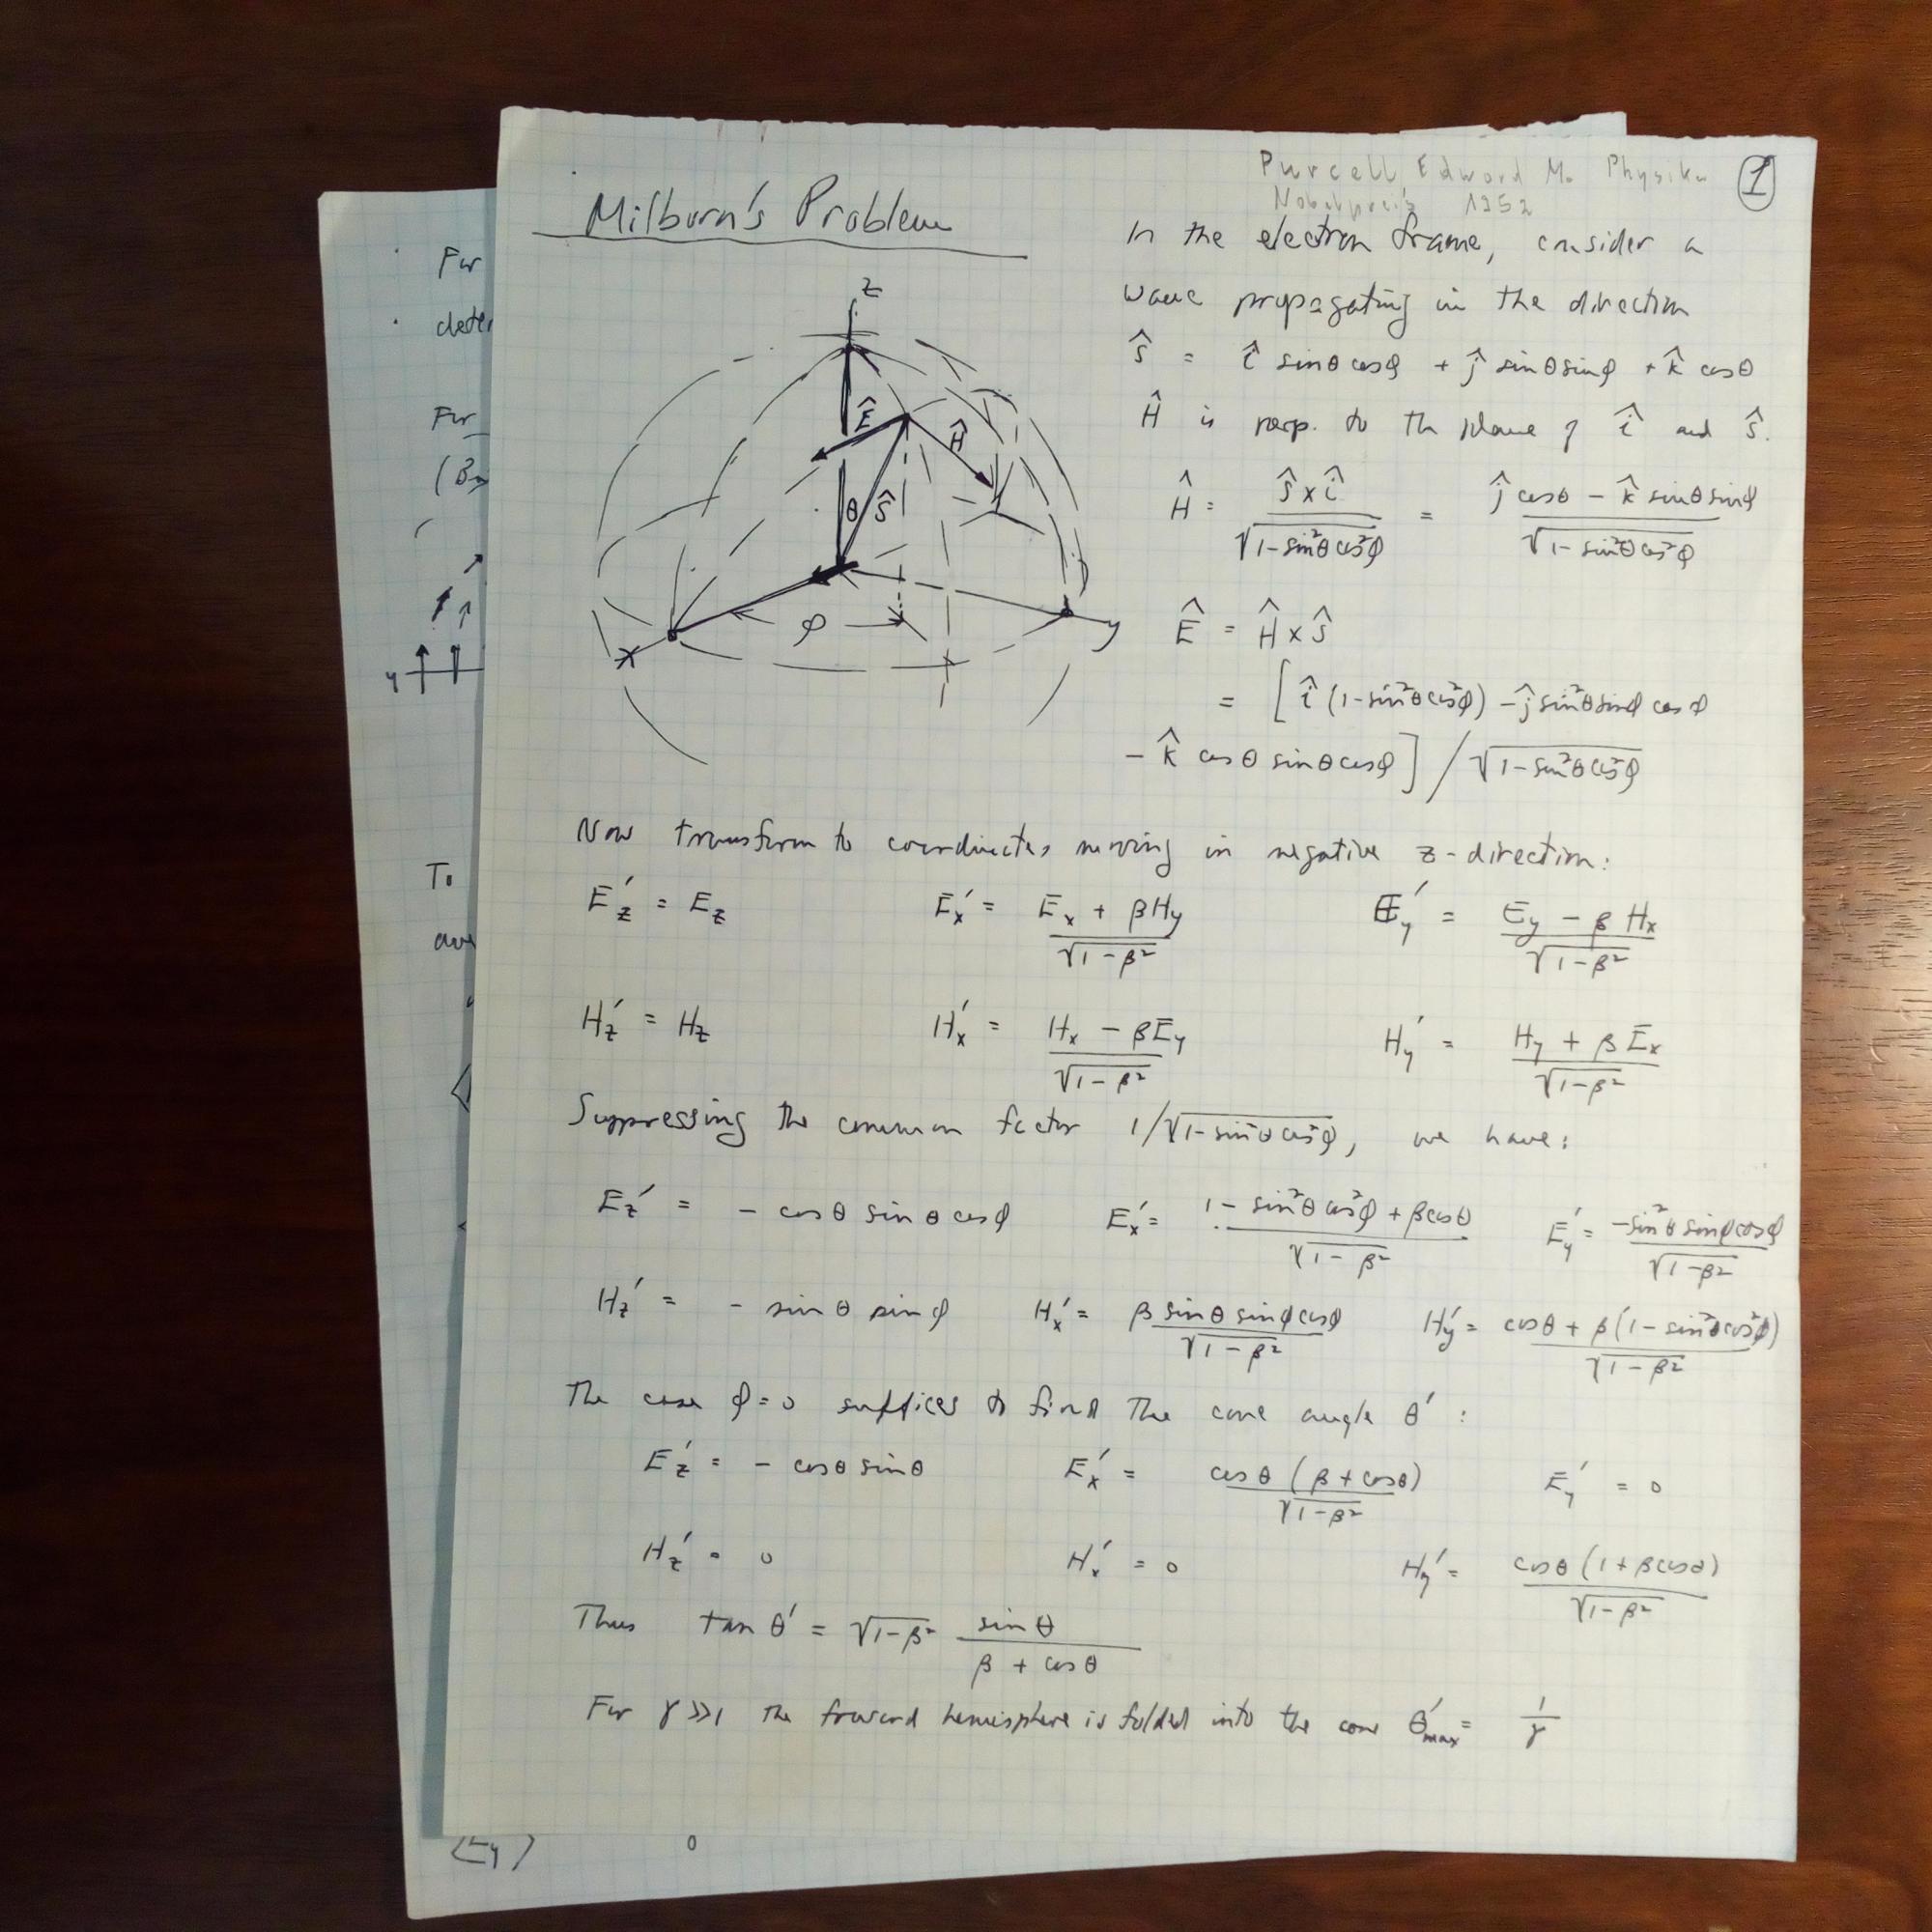 Purcell Edward M. Physiker
Nobelpreis 1952
1
Milburn's Problem
In the electron frame, consider a
wave propagating in the direction
ŝ = î sinθ cosφ + ĵ sinθ sinφ + k̂ cosθ
Ĥ is perp. to the plane of î and ŝ.
Ĥ = ŝ x î / √(1-sin²θ cos²φ) = (ĵ cosθ - k̂ sinθ sinφ) / √(1-sin²θ cos²φ)
Ê = Ĥ x ŝ
= [ î (1-sin²θ cos²φ) - ĵ sin²θ sinφ cosφ
- k̂ cosθ sinθ cosφ ] / √(1-sin²θ cos²φ)
z
Ê
Ĥ
θ
ŝ
φ
x
y
Now transform to coordinates moving in negative z-direction:
E'z = Ez E'x = (Ex + βHy) / √(1-β²) E'y = (Ey - βHx) / √(1-β²)
H'z = Hz H'x = (Hx - βEy) / √(1-β²) H'y = (Hy + βEx) / √(1-β²)
Suppressing the common factor 1/√(1-sin²θ cos²φ), we have:
Ez' = - cosθ sinθ cosφ Ex' = (1 - sin²θ cos²φ + βcosθ) / √(1-β²) Ey' = -sin²θ sinφ cosφ / √(1-β²)
Hz' = - sinθ sinφ Hx' = β sinθ sinφ cosφ / √(1-β²) Hy' = (cosθ + β(1-sin²θ cos²φ)) / √(1-β²)
The case φ=0 suffices to find the cone angle θ' :
Ez' = - cosθ sinθ Ex' = cosθ (β + cosθ) / √(1-β²) Ey' = 0
Hz' = 0 Hx' = 0 Hy' = cosθ (1 + βcosθ) / √(1-β²)
Thus tan θ' = √(1-β²) sinθ / (β + cosθ)
For γ >> 1 the forward hemisphere is folded into the cone θ'max = 1/γ
For
For
To
y
(Ey)
0